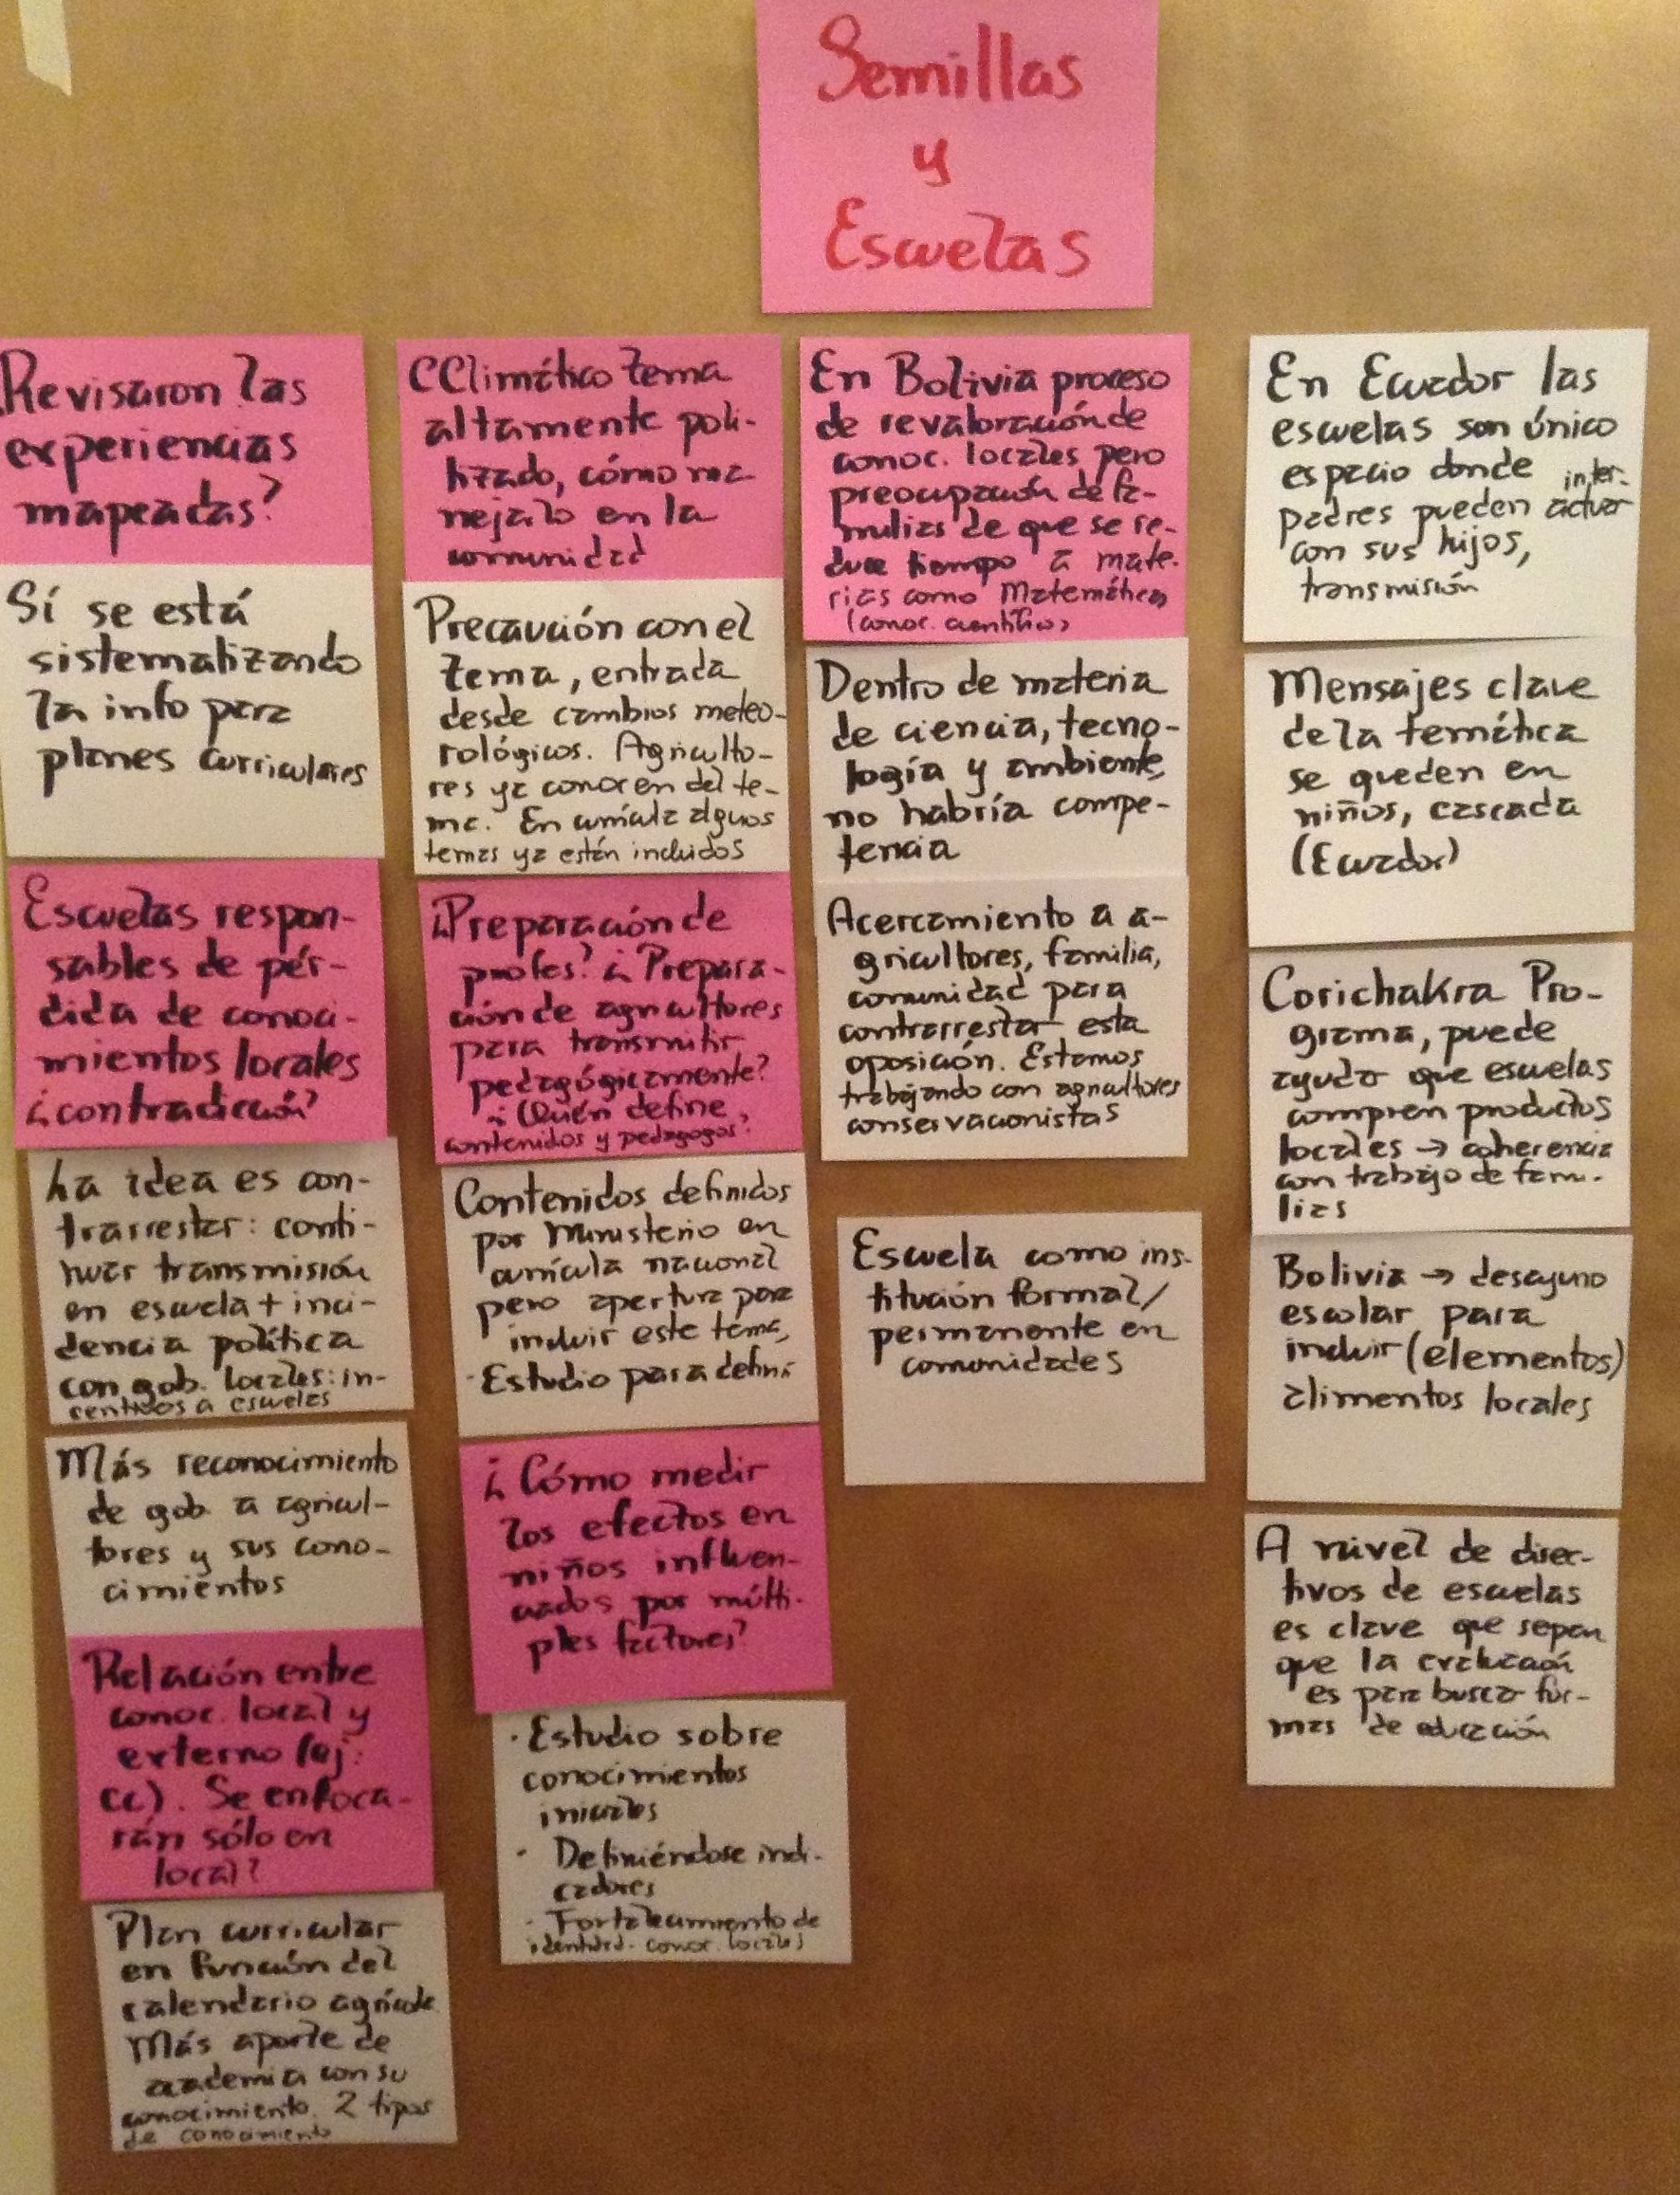 Semillas
y
Escuelas
Revisaron las
experiencias
mapeadas?
Sí se está
sistematizando
la info para
planes curriculares
Escuelas respon-
sables de pér-
dida de conoci-
mientos locales
¿contradicción?
La idea es con-
trarrestar: conti-
nuar transmisión
en escuela + inci-
dencia política
con gob. locales: in-
centivos a escuelas
Más reconocimiento
de gob. a agricul-
tores y sus cono-
cimientos
Relación entre
conoc. local y
externo (ej:
CC). Se enfoca-
rán sólo en
local?
Plan curricular
en función del
calendario agrícola
Más aporte de
academia con su
conocimiento. 2 tipos
de conocimiento
CClimático tema
altamente poli-
tizado, cómo ma-
nejarlo en la
comunidad
Precaución con el
tema, entrada
desde cambios meteo-
rológicos. Agriculto-
res ya conocen del te-
ma. En currícula algunos
temas ya están incluidos
¿Preparación de
profes? ¿Prepara-
ción de agricultores
para transmitir
pedagógicamente?
¿Quién define
contenidos y pedagogos?
Contenidos definidos
por Ministerio en
currícula nacional
pero apertura para
incluir este tema,
· Estudio para definir
¿Cómo medir
los efectos en
niños influen-
ciados por múlti-
ples factores?
· Estudio sobre
conocimientos
iniciales
· Definiéndose indi-
cadores
· Fortalecimiento de
identidad. conoc. locales
En Bolivia proceso
de revaloración de
conoc. locales pero
preocupación de fa-
milias de que se re-
duce tiempo a mate-
rias como Matemáticas
(conoc. científico)
Dentro de materia
de ciencia, tecno-
logía y ambiente,
no habría compe-
tencia
Acercamiento a a-
gricultores, familia,
comunidad para
contrarrestar esta
oposición. Estamos
trabajando con agricultores
conservacionistas
Escuela como ins-
titución formal/
permanente en
comunidades
En Ecuador las
escuelas son único
espacio donde
padres pueden inter-
actuar
con sus hijos,
transmisión
Mensajes clave
de la temática
se queden en
niños, cascada
(Ecuador)
Corichakra Pro-
grama, puede
ayudar que escuelas
compren productos
locales → coherencia
con trabajo de fami-
lias
Bolivia → desayuno
escolar para
incluir (elementos)
alimentos locales
A nivel de direc-
tivos de escuelas
es clave que sepan
que la evaluación
es para buscar for-
mas de educación